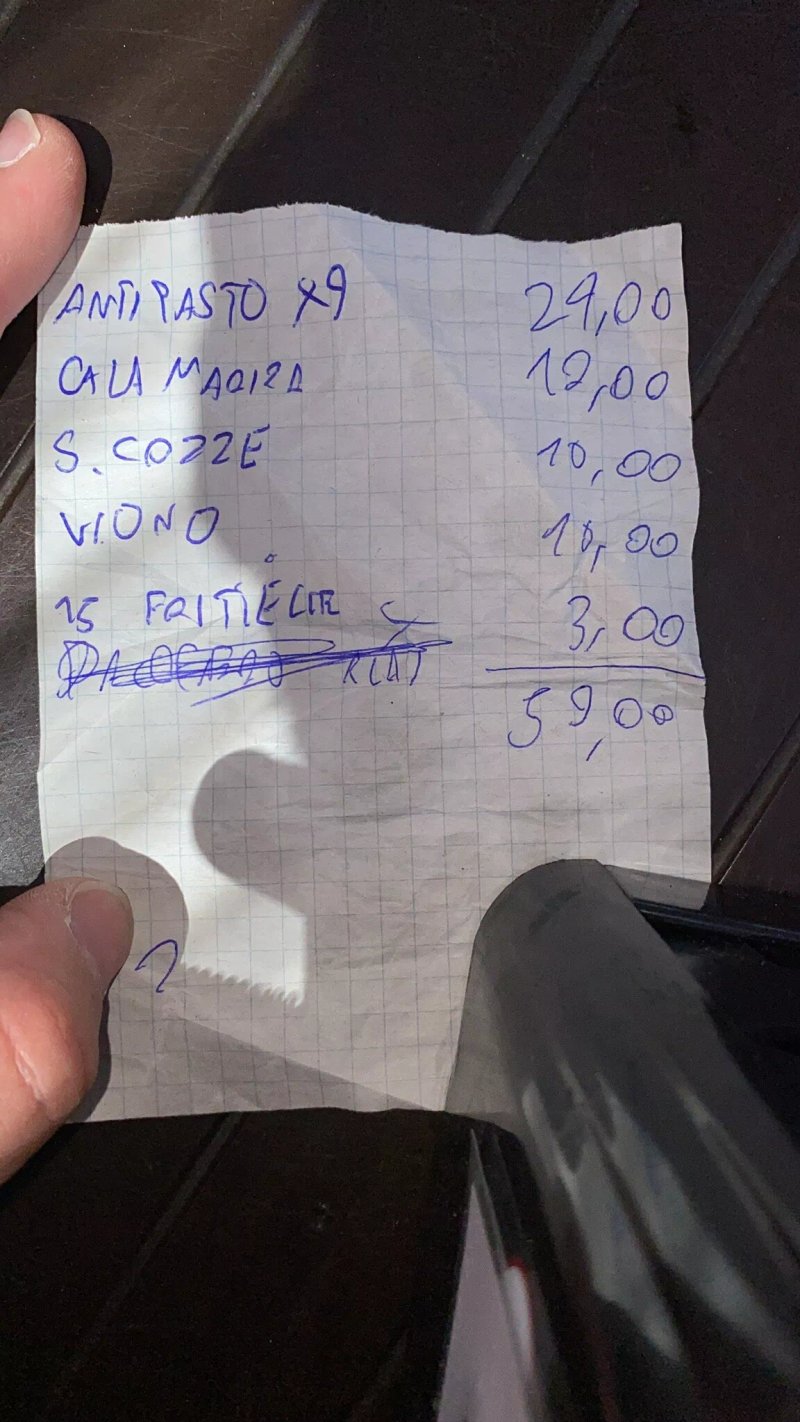 ANTIPASTO X9 24,00
CALAMARIZA 12,00
S. COZZE 10,00
VIONO 10,00
15 FRITTELLE 3,00
59,00